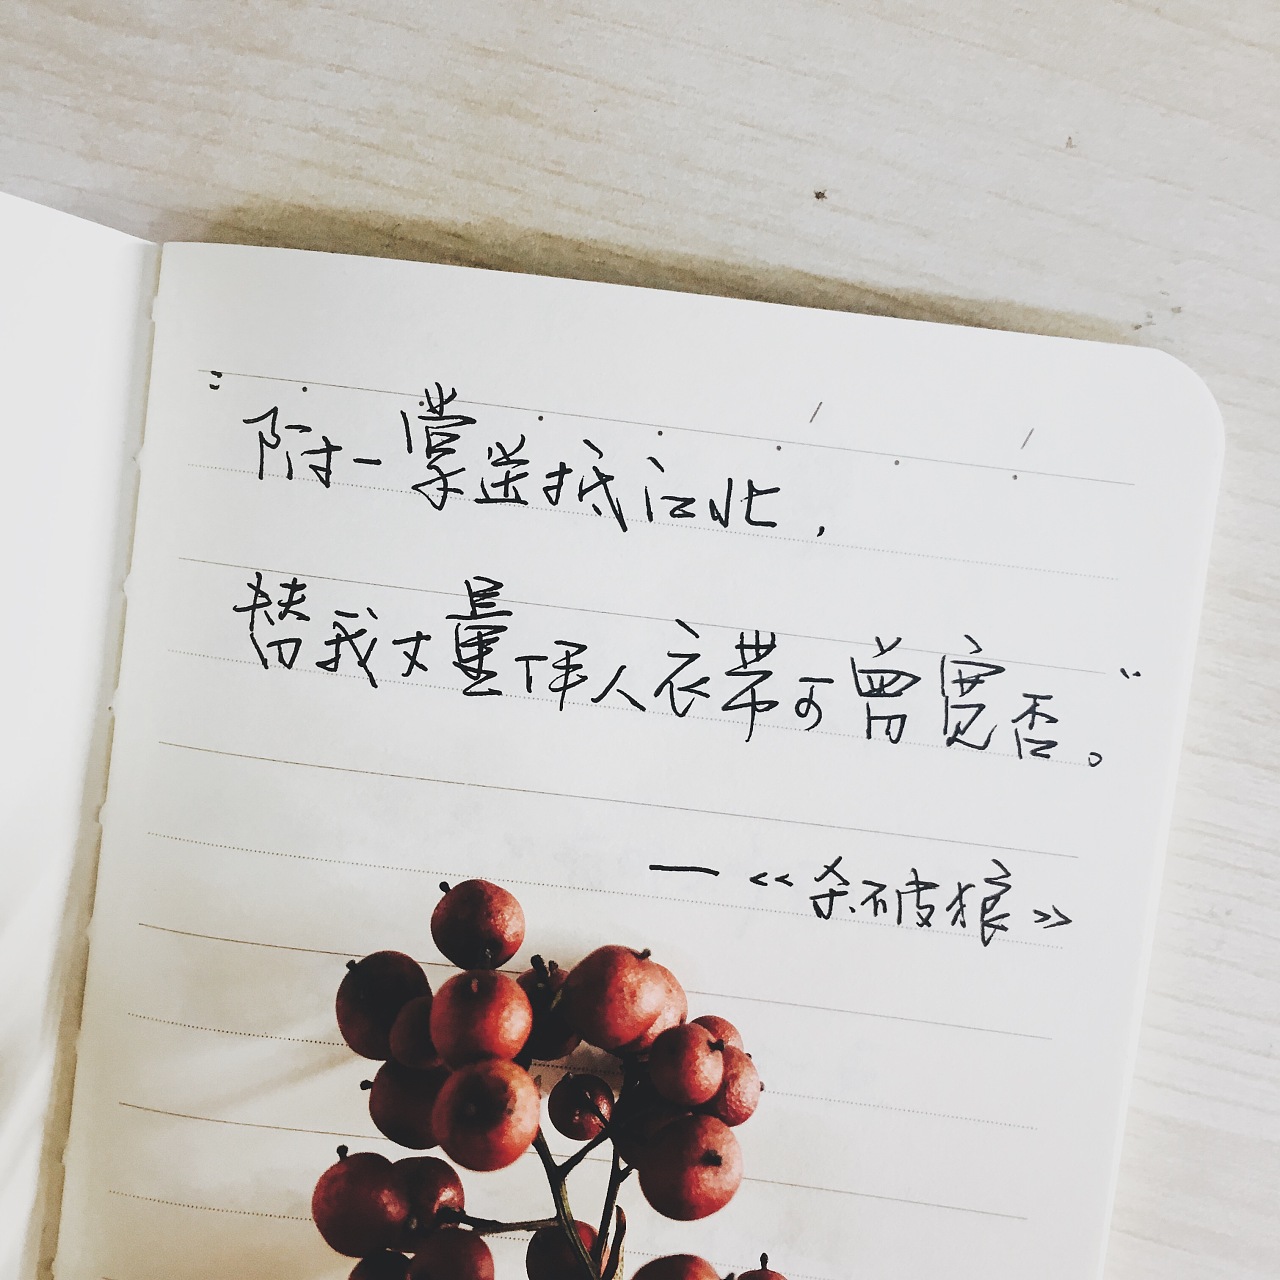 “附一掌送抵江北,
替我丈量伊人衣带可曾宽否。”
—《杀破狼》